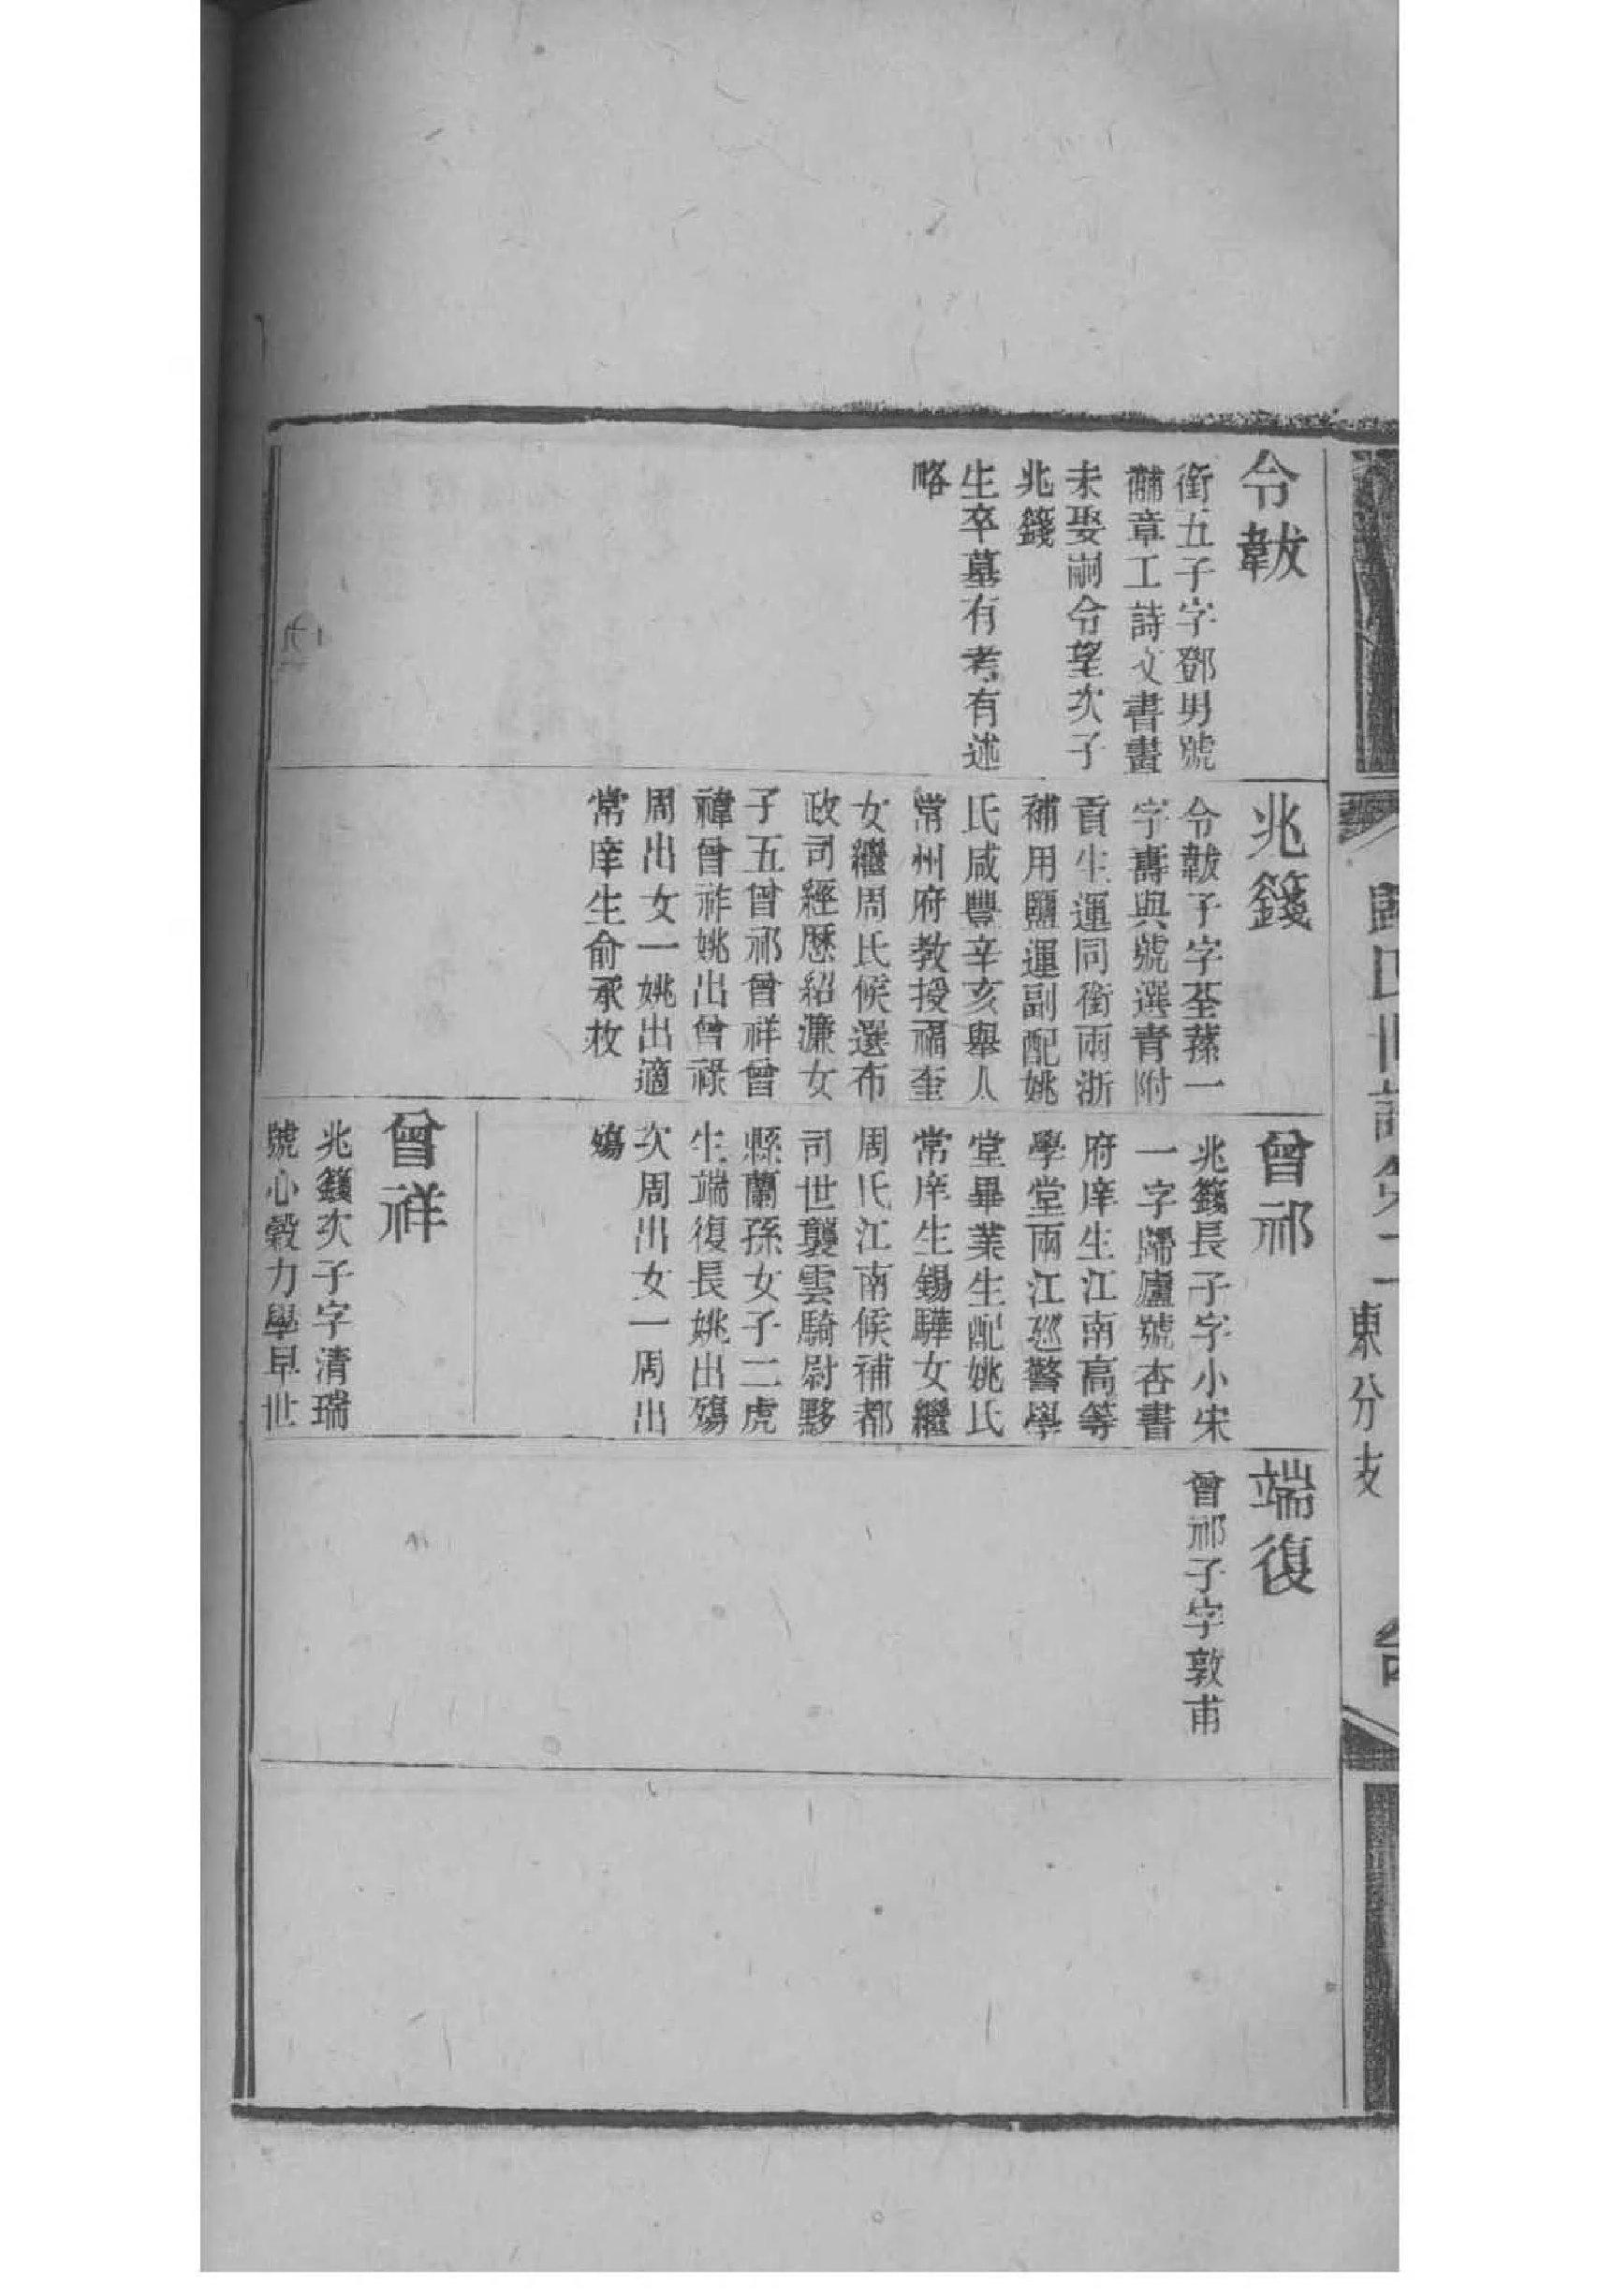 令韍
衔五子字鄧男號
黼章工詩文書畫
未娶嗣令望次子
兆籛
生卒墓有考有述
略
兆籛
令韍子字荃蓀一
字壽與號選青附
貢生運同銜兩浙
補用鹽運副配姚
氏咸豐辛亥舉人
常州府教授福奎
女繼周氏候選布
政司經歷紹濂女
子五曾祁曾祥曾
禕曾祚姚出曾祿
周出女一姚出適
常庠生俞承枚
曾祁
兆籛長子字小宋
一字歸廬號杏書
府庠生江南高等
學堂兩江巡警學
堂畢業生配姚氏
常庠生錫驊女繼
周氏江南候補都
司世襲雲騎尉黟
縣蘭孫女子二虎
生端復長姚出殤
次周出女一周出
殤
曾祥
兆籛次子字清瑞
號心穀力學早世
端復
曾祁子字敦甫
東分支